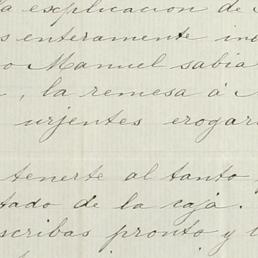 la esplicacion de
s enteramente in
o Manuel sabia
, la remesa á
urjentes erogar
tenerte al tanto
tado de la caja.
scribas pronto y